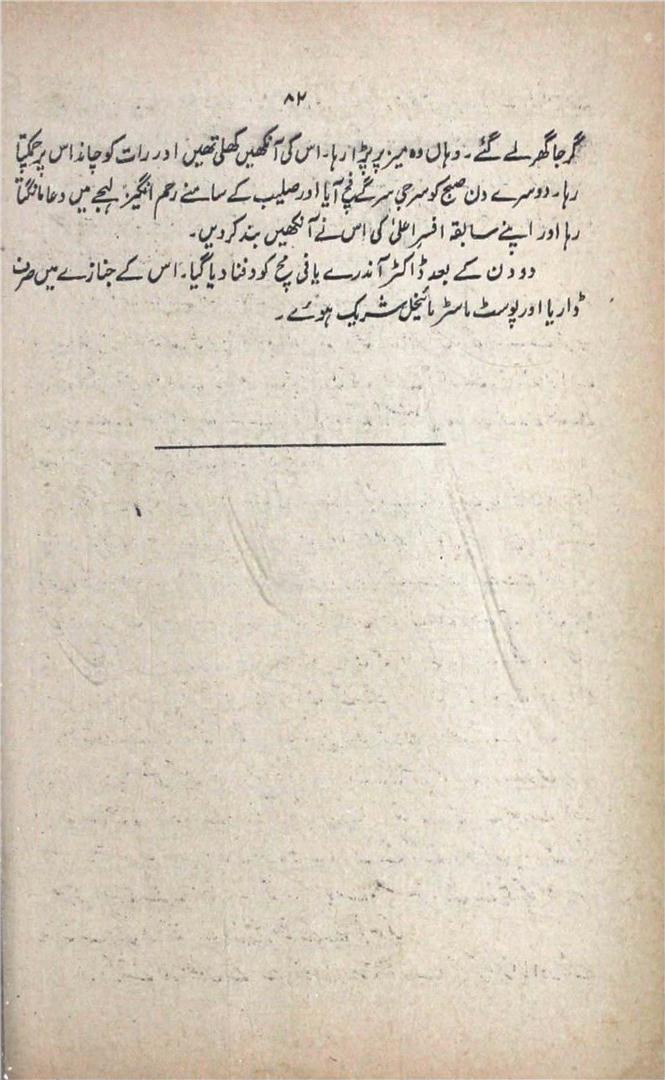 ۸۲
گرجا گھر لے گئے۔ وہاں وہ میز پر پڑا رہا۔ اس کی آنکھیں کھلی تھیں اور رات کو چاند اس پر چمکتا
رہا۔ دوسرے دن صبح کو سرجی سرگے یچ آیا اور صلیب کے سامنے رحم انگیز لہجے میں دعا مانگتا
رہا اور اپنے سابقہ افسر اعلیٰ کی اس نے آنکھیں بند کردیں۔
دو دن کے بعد ڈاکٹر آندرے یافی مچ کو دفنا دیا گیا۔ اس کے جنازے میں صرف
ڈاریا اور پوسٹ ماسٹر مائیخل شریک ہوئے۔